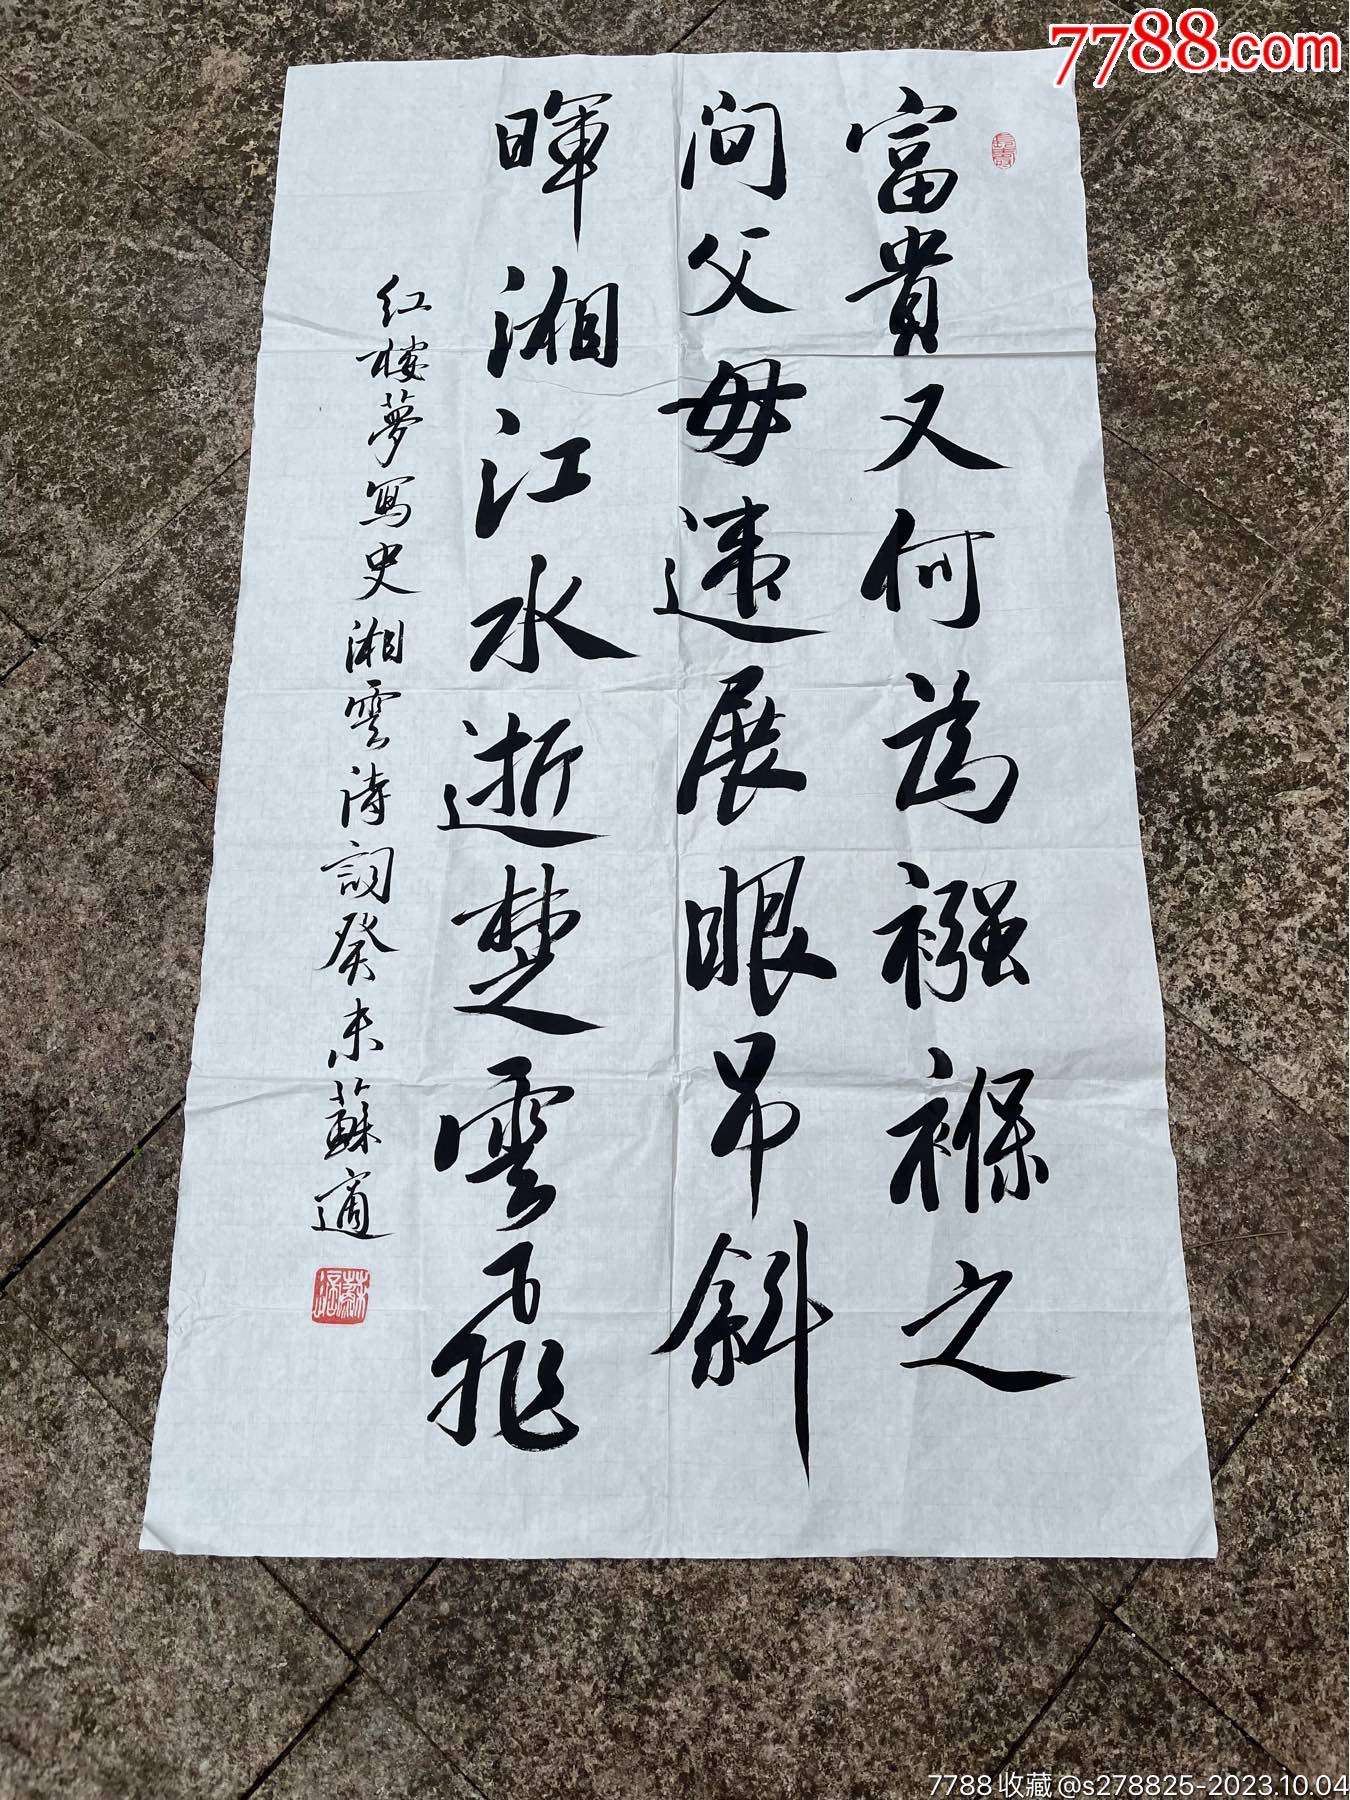 7788.com
富貴又何為襁褓之
间父毋违展眼吊斜
暉湘江水逝楚雲飛
红楼夢寫史湘雲诗詞癸未蘇適
蘇適
7788收藏@s278825-2023.10.04